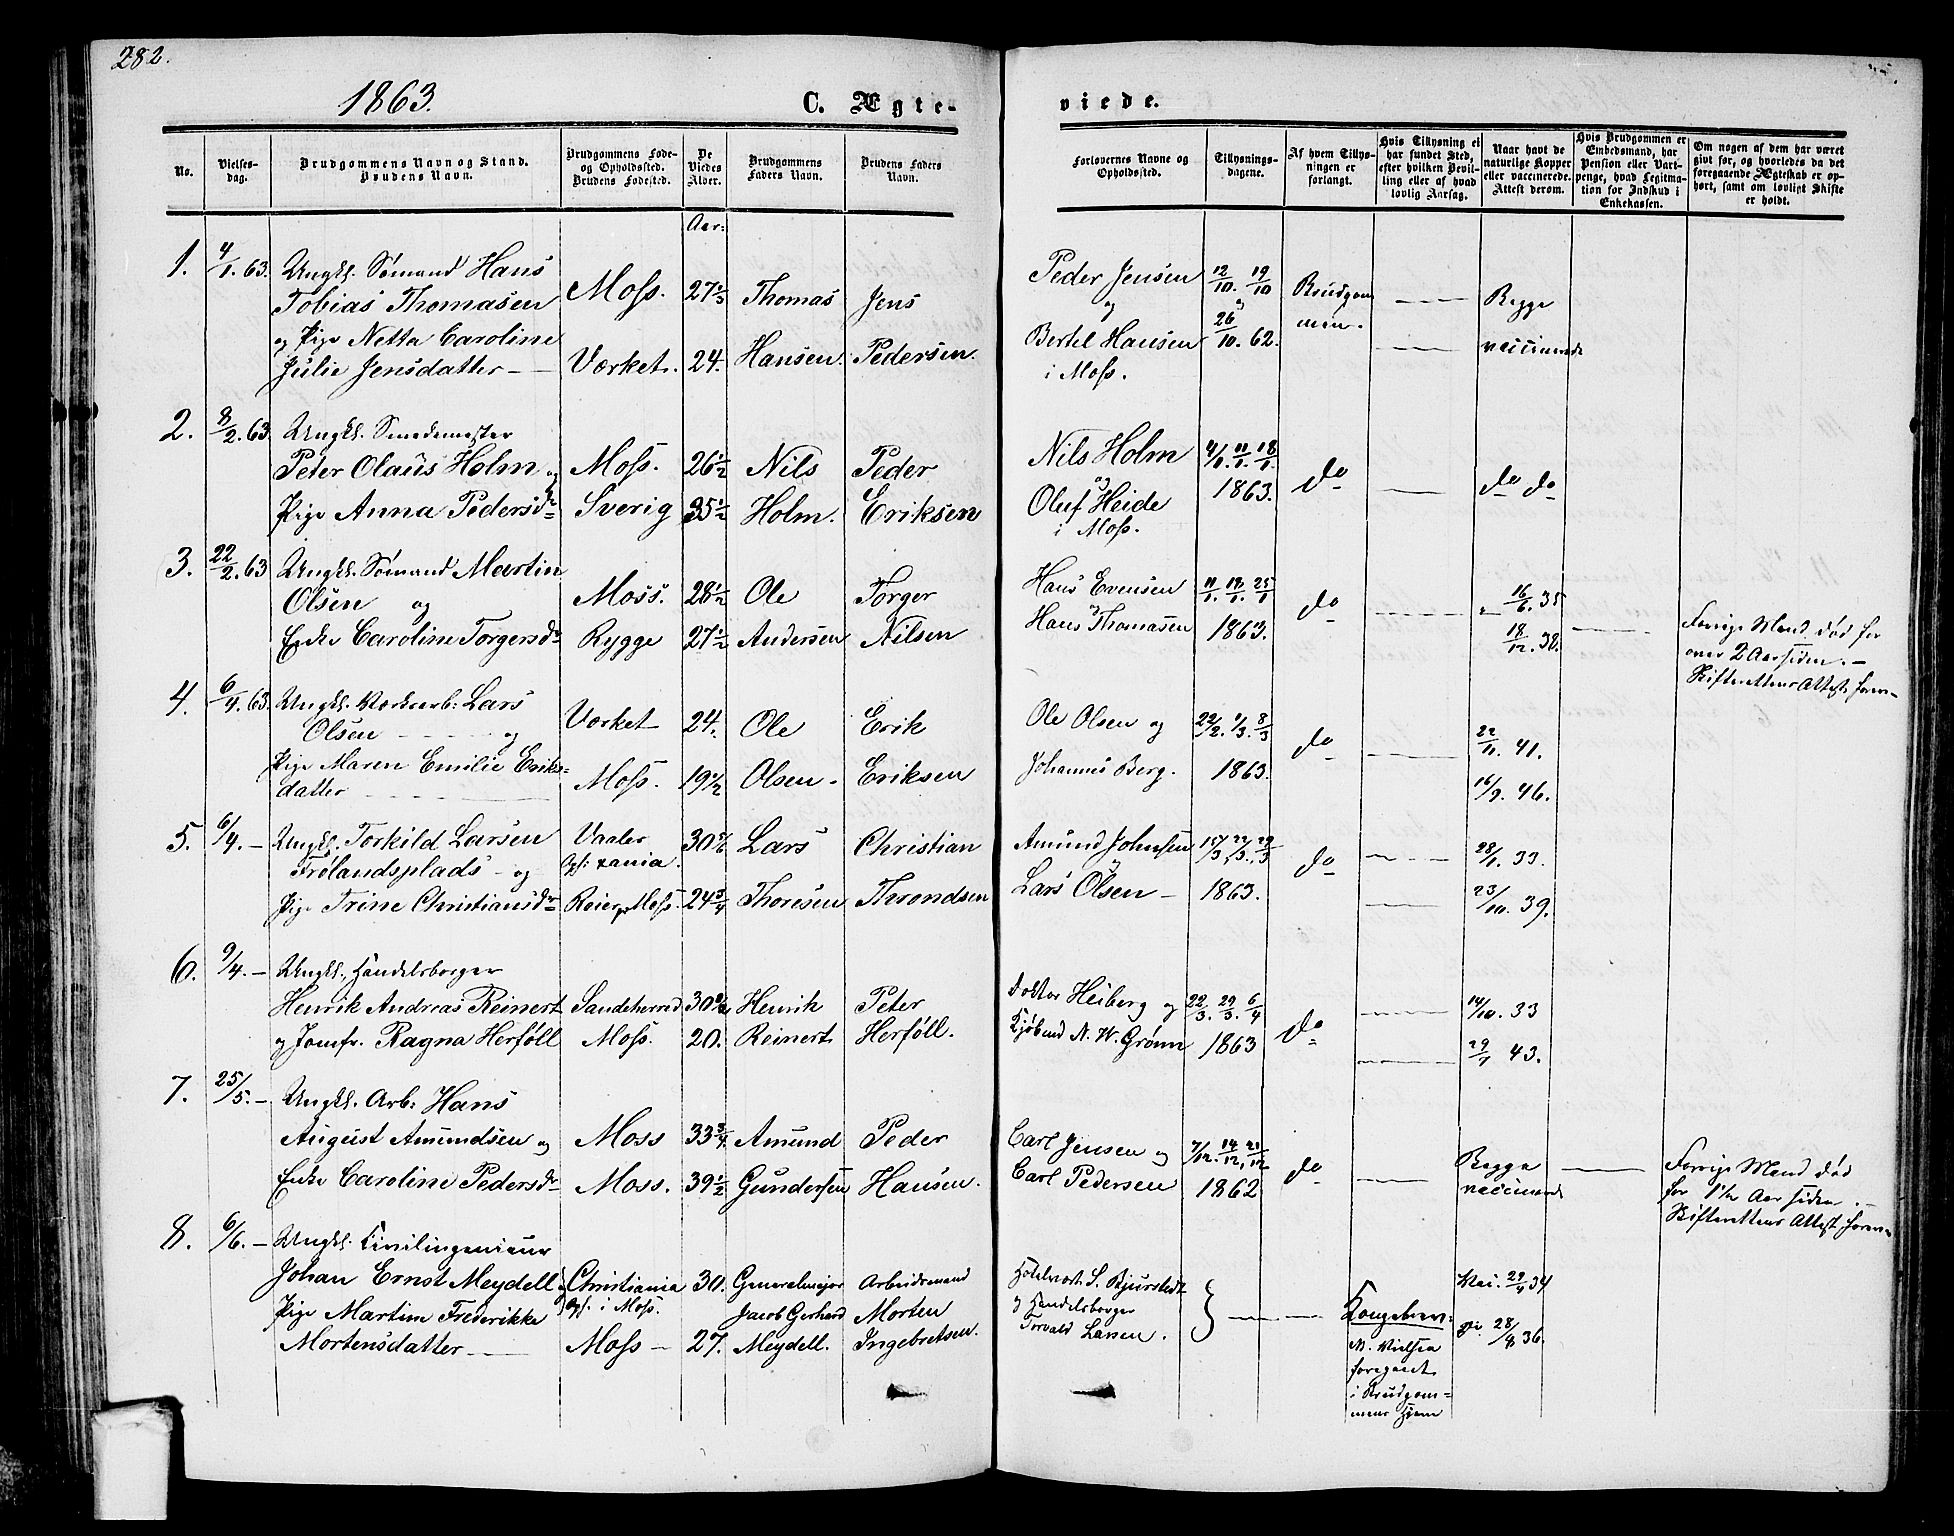 282.
1863.
C. Ægte-
viede.
No.
Vielses-
dag.
Brudgommens Navn og Stand.
Brudens Navn.
Brudgommens Føde-
og Opholdssted.
Brudens Fødested.
De
Viedes
Alder.
Brudgommens
Faders Navn.
Brudens Faders
Navn.
Forlovernes Navne og
Opholdssted.
Tillysnings-
dagene.
Af hvem Tillys-
ningen er
forlangt.
Hvis Tillysning ei
har fundet Sted,
efter hvilken Bevil-
ling eller af hvad
lovlig Aarsag.
Naar havt de
naturlige Kopper
eller vaccinerede.
Attest derom.
Hvis Brudgommen er
Embedsmand, har
Pension eller Vart-
penge, hvad Legitima-
tion for Indskud i
Enkekassen.
Om nogen af dem har været
givt før, og hvorledes da det
foregaaende Ægteskab er op-
hørt, samt om lovligt Skifte
er holdt.
Aar:
1. 4/1. 63. Ungkl. Sømand Hans
Tobias Thomasen Moss. 27 1/3 Thomas Jens
og Pige Netta Caroline
Julie Jensdatter — Værket. 24. Hansen. Pedersen.
Peder Jensen 12/10. 19/10 Brudgom
og og men. — Begge
Bertel Hansen 26/10. 62. — vaccinerede
i Moss.
2. 8/2. 63. Ungkl. Smedemester
Peter Olaus Holm og Moss. 26 1/2 Nils Peder
Pige Anna Pedersdr Sverig 35 1/2 Holm. Eriksen
Nils Holm 4/1. 11/1. 18/1.
og 1863. do — do do
Oluf Heide
i Moss.
3. 22/2. 63 Ungkl. Sømand Martin
Olsen og Moss. 28 1/2 Ole Torger
Enke Caroline Torgersdr Rygge 27 1/2 Andersen Nilsen
Hans Evensen 11/1. 18/1. 25/1 do — 16/6. 35
og
Hans Thomasen 1863. 18/12. 38. — Forrige Mand død for
over 2 Aar siden. —
Skifterettens Attest frem-
4. 6/4. 63. Ungkl. Værksarb: Lars
Olsen — og Værket 24. Ole Erik
Pige Maren Emilie Eriks=
datter — Moss. 19 1/2 Olsen - Eriksen
Ole Olsen og 22/2. 1/3. 8/3 do — 22/11. 41.
Johannes Berg. 1863. 16/9. 46.
5. 6/4. — Ungkl. Torkild Larsen Vaaler 30 5/6 Lars Christian
Frølandsplads - og Opf: Xania.
Pige Trine Christiansdr Reier pr Moss. 24 3/4 Thoresen Throndsen
Amund Johnsen 15/3. 22/3. 29/3 do — 28/1. 33.
og
Lars Olsen — 1863. — 23/10. 39.
6. 9/4. — Ungkl. Handelsborger
Henrik Andreas Reinert Sandeherred Henrik Peter
og Jomfr. Ragna Herføll Moss. 20. Reinert Herføll.
Doktor Heiberg og 22/3. 29/3. 6/4 do — 14/10. 33
Kjøbmd N. W. Grønn 1863 — 29/7 43.
7. 25/5. — Ungkl. Arb: Hans
August Amundsen og Moss 33 3/4 Amund Peder
Enke Caroline Pedersdr Moss. 39 1/2 Gundersen Hansen.
Carl Jensen og 7/12. 14/12. 21/12 do — Begge — Forrige Mand død
Carl Pedersen 1862 vaccinerede for 1 1/2 Aar siden. —
Skifterettens Attest frem-
8. 6/6. — Ungkl. Civilingenieur
Johan Ernst Meydell og Christiania 30. Generalmajor Arbeidsmand
Pige Martine Frederikke Opf. i Moss. Jacob Gerhard Morten
Mortensdatter — Moss — 27. Meydell. Ingebretsen.
Hotelvært S. Bjurstedt
og Handelsborger
Torvald Larsen. — — Kongebrev=
M. Vielsen
foregaaet
i Brudgom=
mens Hjem
Vac. 29/4 34
28/8 36.